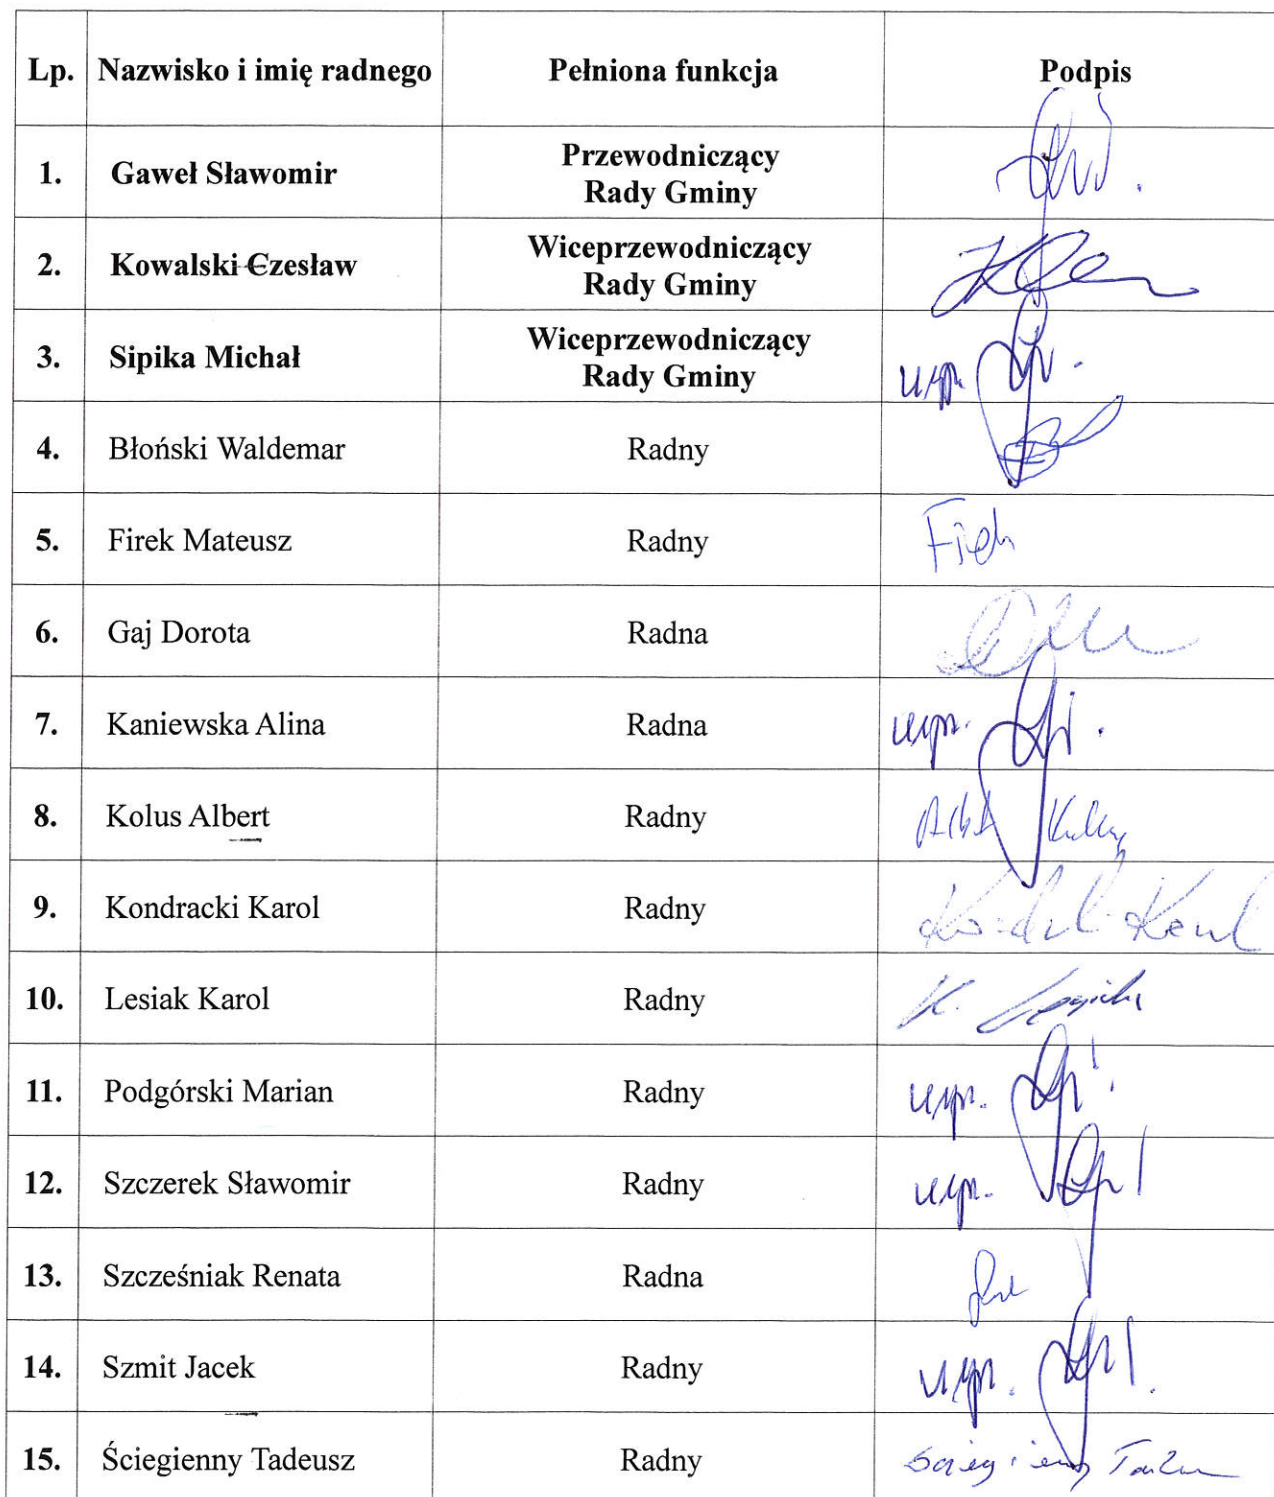 Lp. Nazwisko i imię radnego Pełniona funkcja Podpis
1. Gaweł Sławomir Przewodniczący
Rady Gminy
2. Kowalski Czesław Wiceprzewodniczący
Rady Gminy
3. Sipika Michał Wiceprzewodniczący
Rady Gminy
usp.
4. Błoński Waldemar Radny
5. Firek Mateusz Radny
6. Gaj Dorota Radna
7. Kaniewska Alina Radna usp.
8. Kolus Albert Radny
9. Kondracki Karol Radny
10. Lesiak Karol Radny K.
11. Podgórski Marian Radny usp.
12. Szczerek Sławomir Radny usp.
13. Szcześniak Renata Radna
14. Szmit Jacek Radny usp.
15. Ściegienny Tadeusz Radny